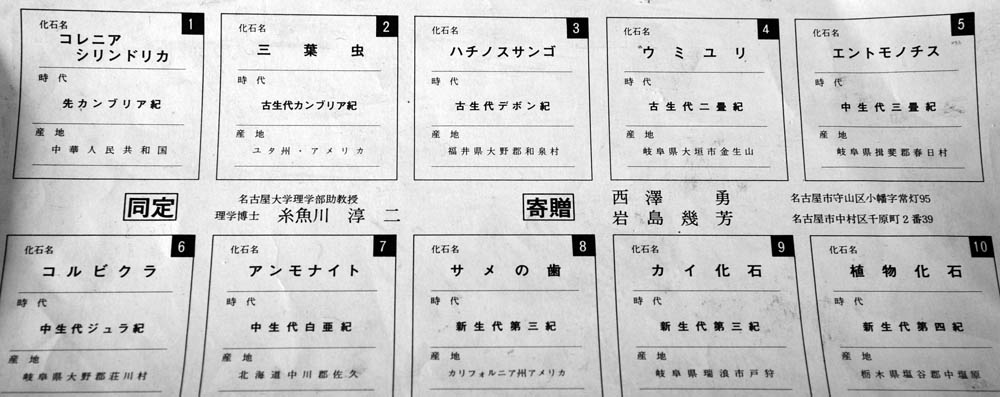 化石名 1
コレニア
シリンドリカ
時代
先カンブリア紀
産地
中華人民共和国
化石名 2
三葉虫
時代
古生代カンブリア紀
産地
ユタ州・アメリカ
化石名 3
ハチノスサンゴ
時代
古生代デボン紀
産地
福井県大野郡和泉村
化石名 4
ウミユリ
時代
古生代二畳紀
産地
岐阜県大垣市金生山
化石名 5
エントモノチス
時代
中生代三畳紀
産地
岐阜県揖斐郡春日村
同定
名古屋大学理学部助教授
理学博士 糸魚川 淳二
寄贈
西澤 勇 名古屋市守山区小幡字常灯95
岩島幾芳 名古屋市中村区千原町2番39
化石名 6
コルビクラ
時代
中生代ジュラ紀
産地
岐阜県大野郡荘川村
化石名 7
アンモナイト
時代
中生代白亜紀
産地
北海道中川郡佐久
化石名 8
サメの歯
時代
新生代第三紀
産地
カリフォルニア州アメリカ
化石名 9
カイ化石
時代
新生代第三紀
産地
岐阜県瑞浪市戸狩
化石名 10
植物化石
時代
新生代第四紀
産地
栃木県塩谷郡中塩原